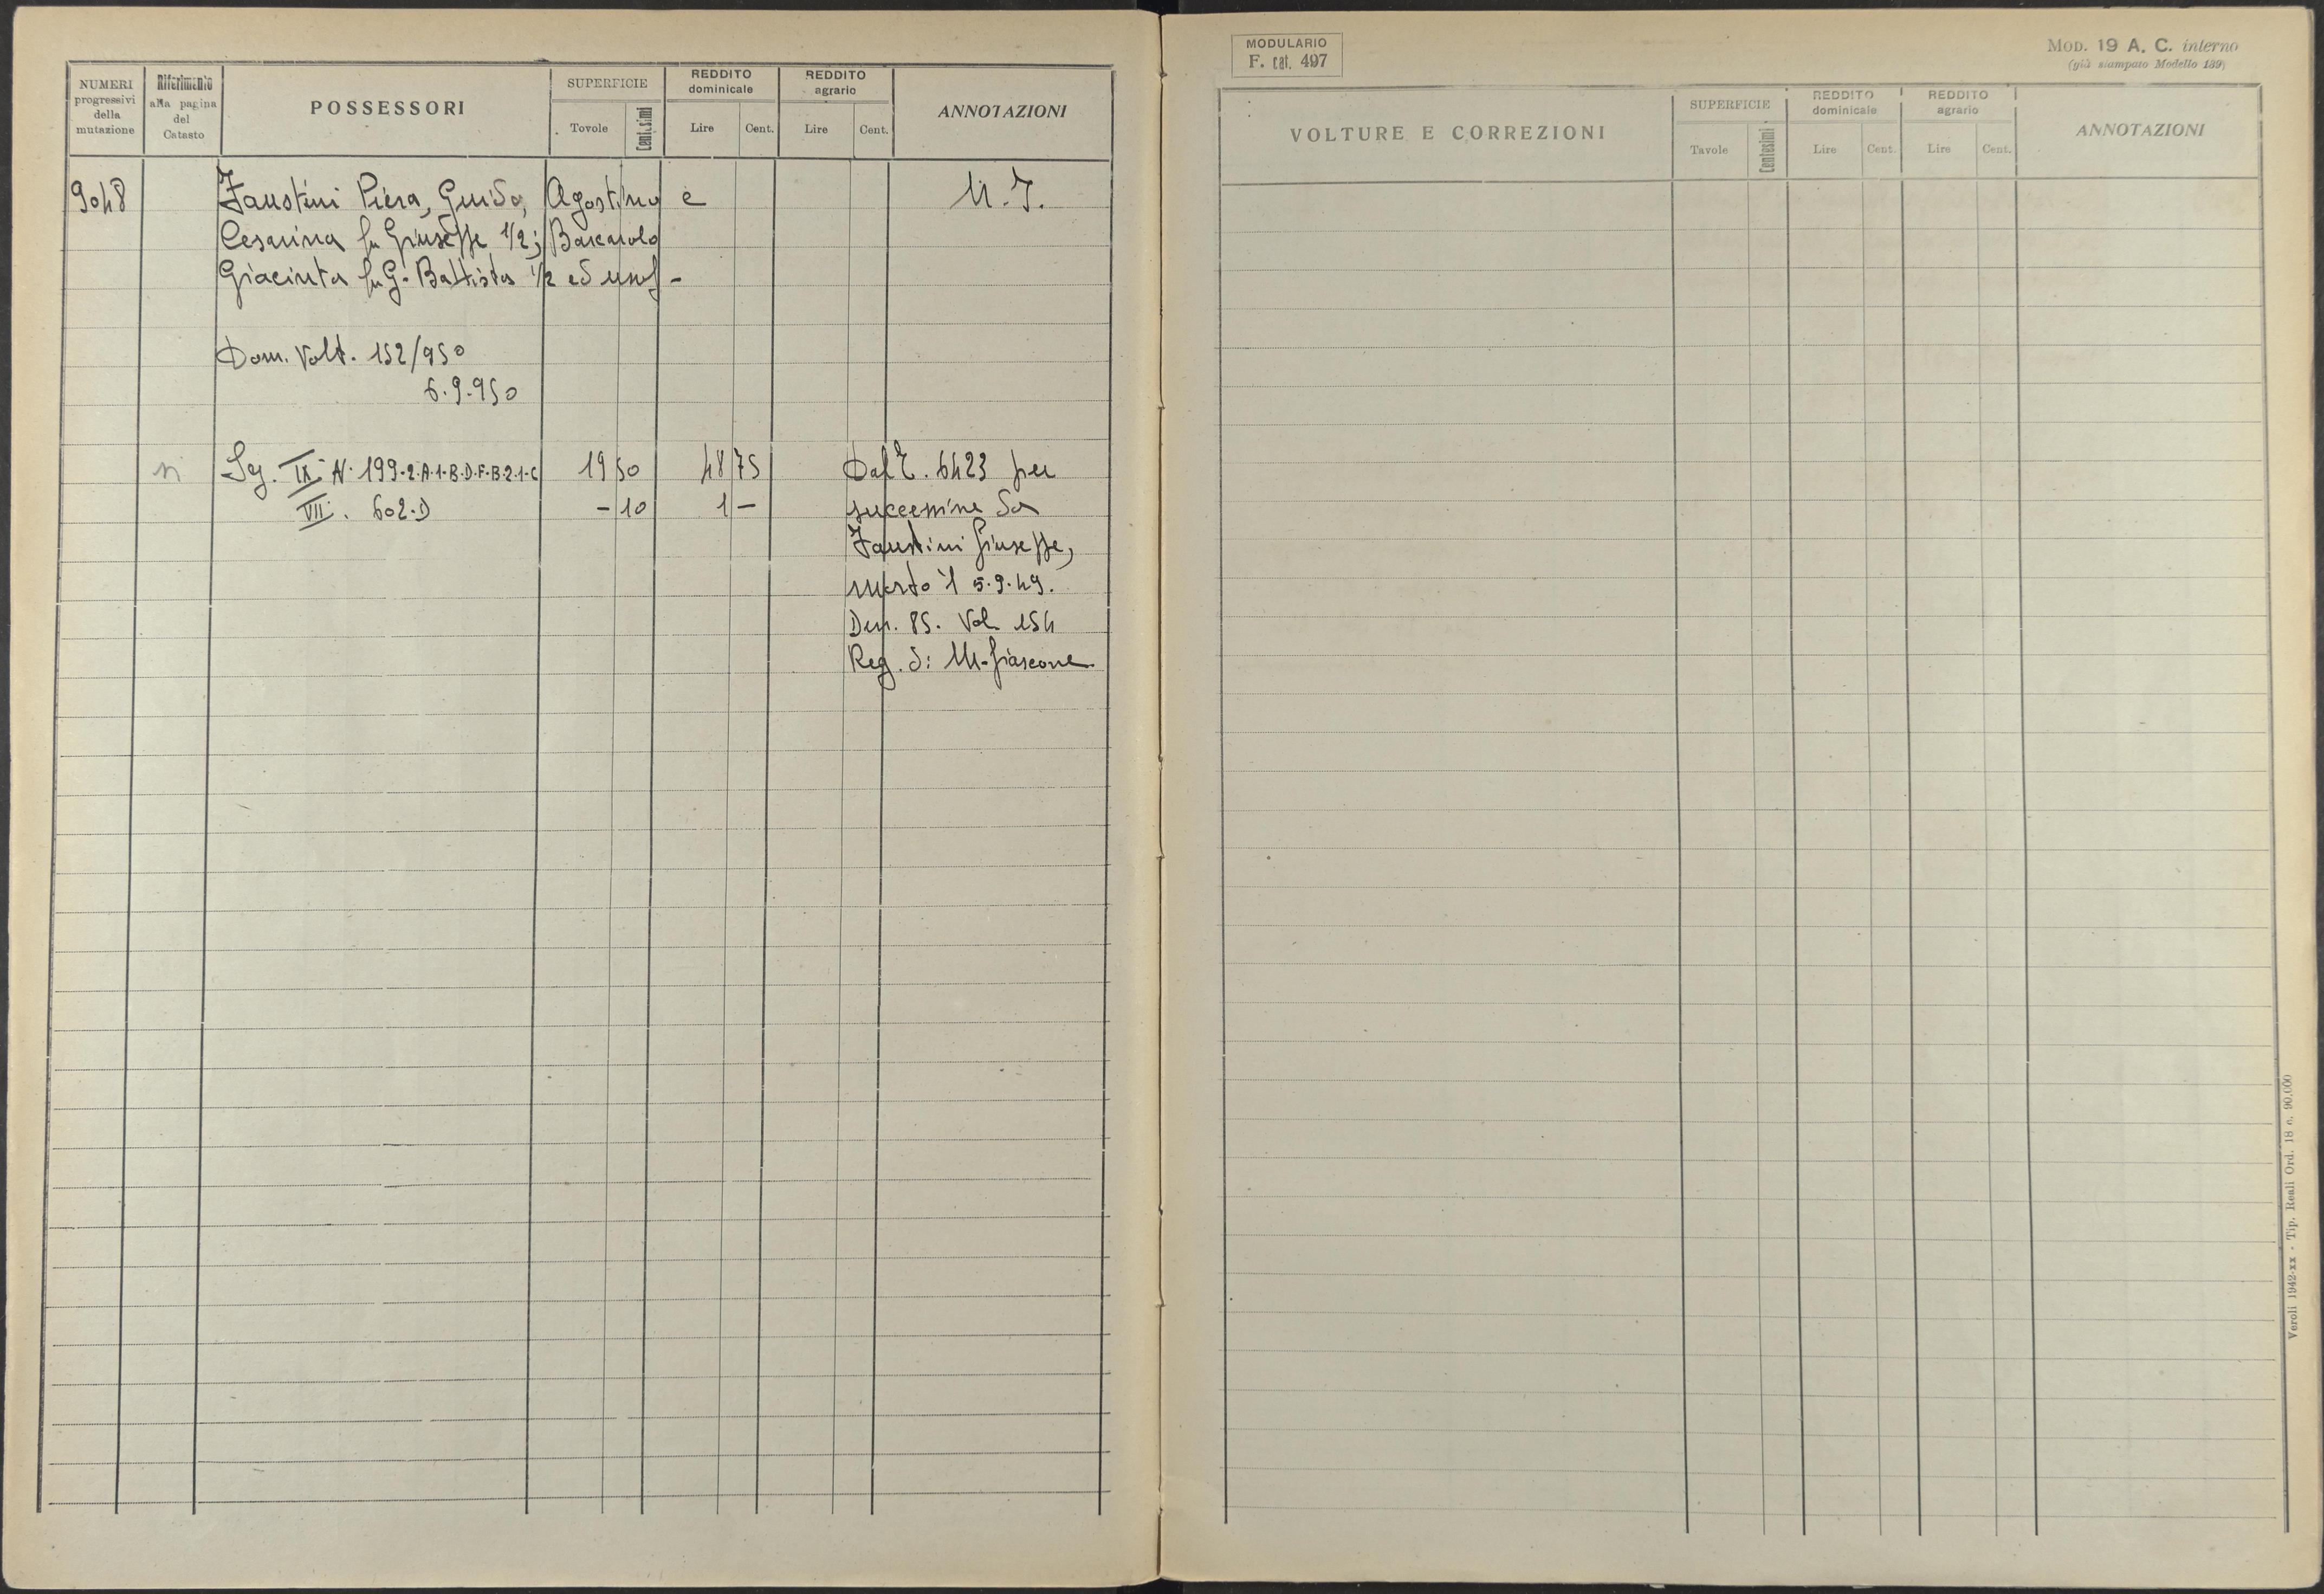 NUMERI progressivi della mutazione
Riferimento alla pagina del Catasto
POSSESSORI
SUPERFICIE
Tovole
Centesimi
REDDITO dominicale
Lire
Cent.
REDDITO agrario
Lire
Cent.
ANNOTAZIONI
9048
Faustini Piera, Guido, Agostino e
M.I.
Cesarina fu Giuseppe 1/2; Barcarolo
Giacinta fu G. Battista 1/2 ed usuf -
Dom. Volt. 152/950
6.9.950
Seg. IX N. 199-2-A-1-B-D-F-B-2-1-C
19 50
48 75
Dal C. 6423 per
VII. 602-D
- 10
1 -
successione da
Faustini Giuseppe,
morto il 5.9.49.
Den. 85. Vol. 154
Reg. di M-fiascone
MODULARIO
F. cat. 497
MOD. 19 A. C. interno
(già stampato Modello 189)
VOLTURE E CORREZIONI
SUPERFICIE
Tavole
Centesimi
REDDITO dominicale
Lire
Cent.
REDDITO agrario
Lire
Cent.
ANNOTAZIONI
Veroli 1942-xx - Tip. Reali Ord. 18 c. 90.000